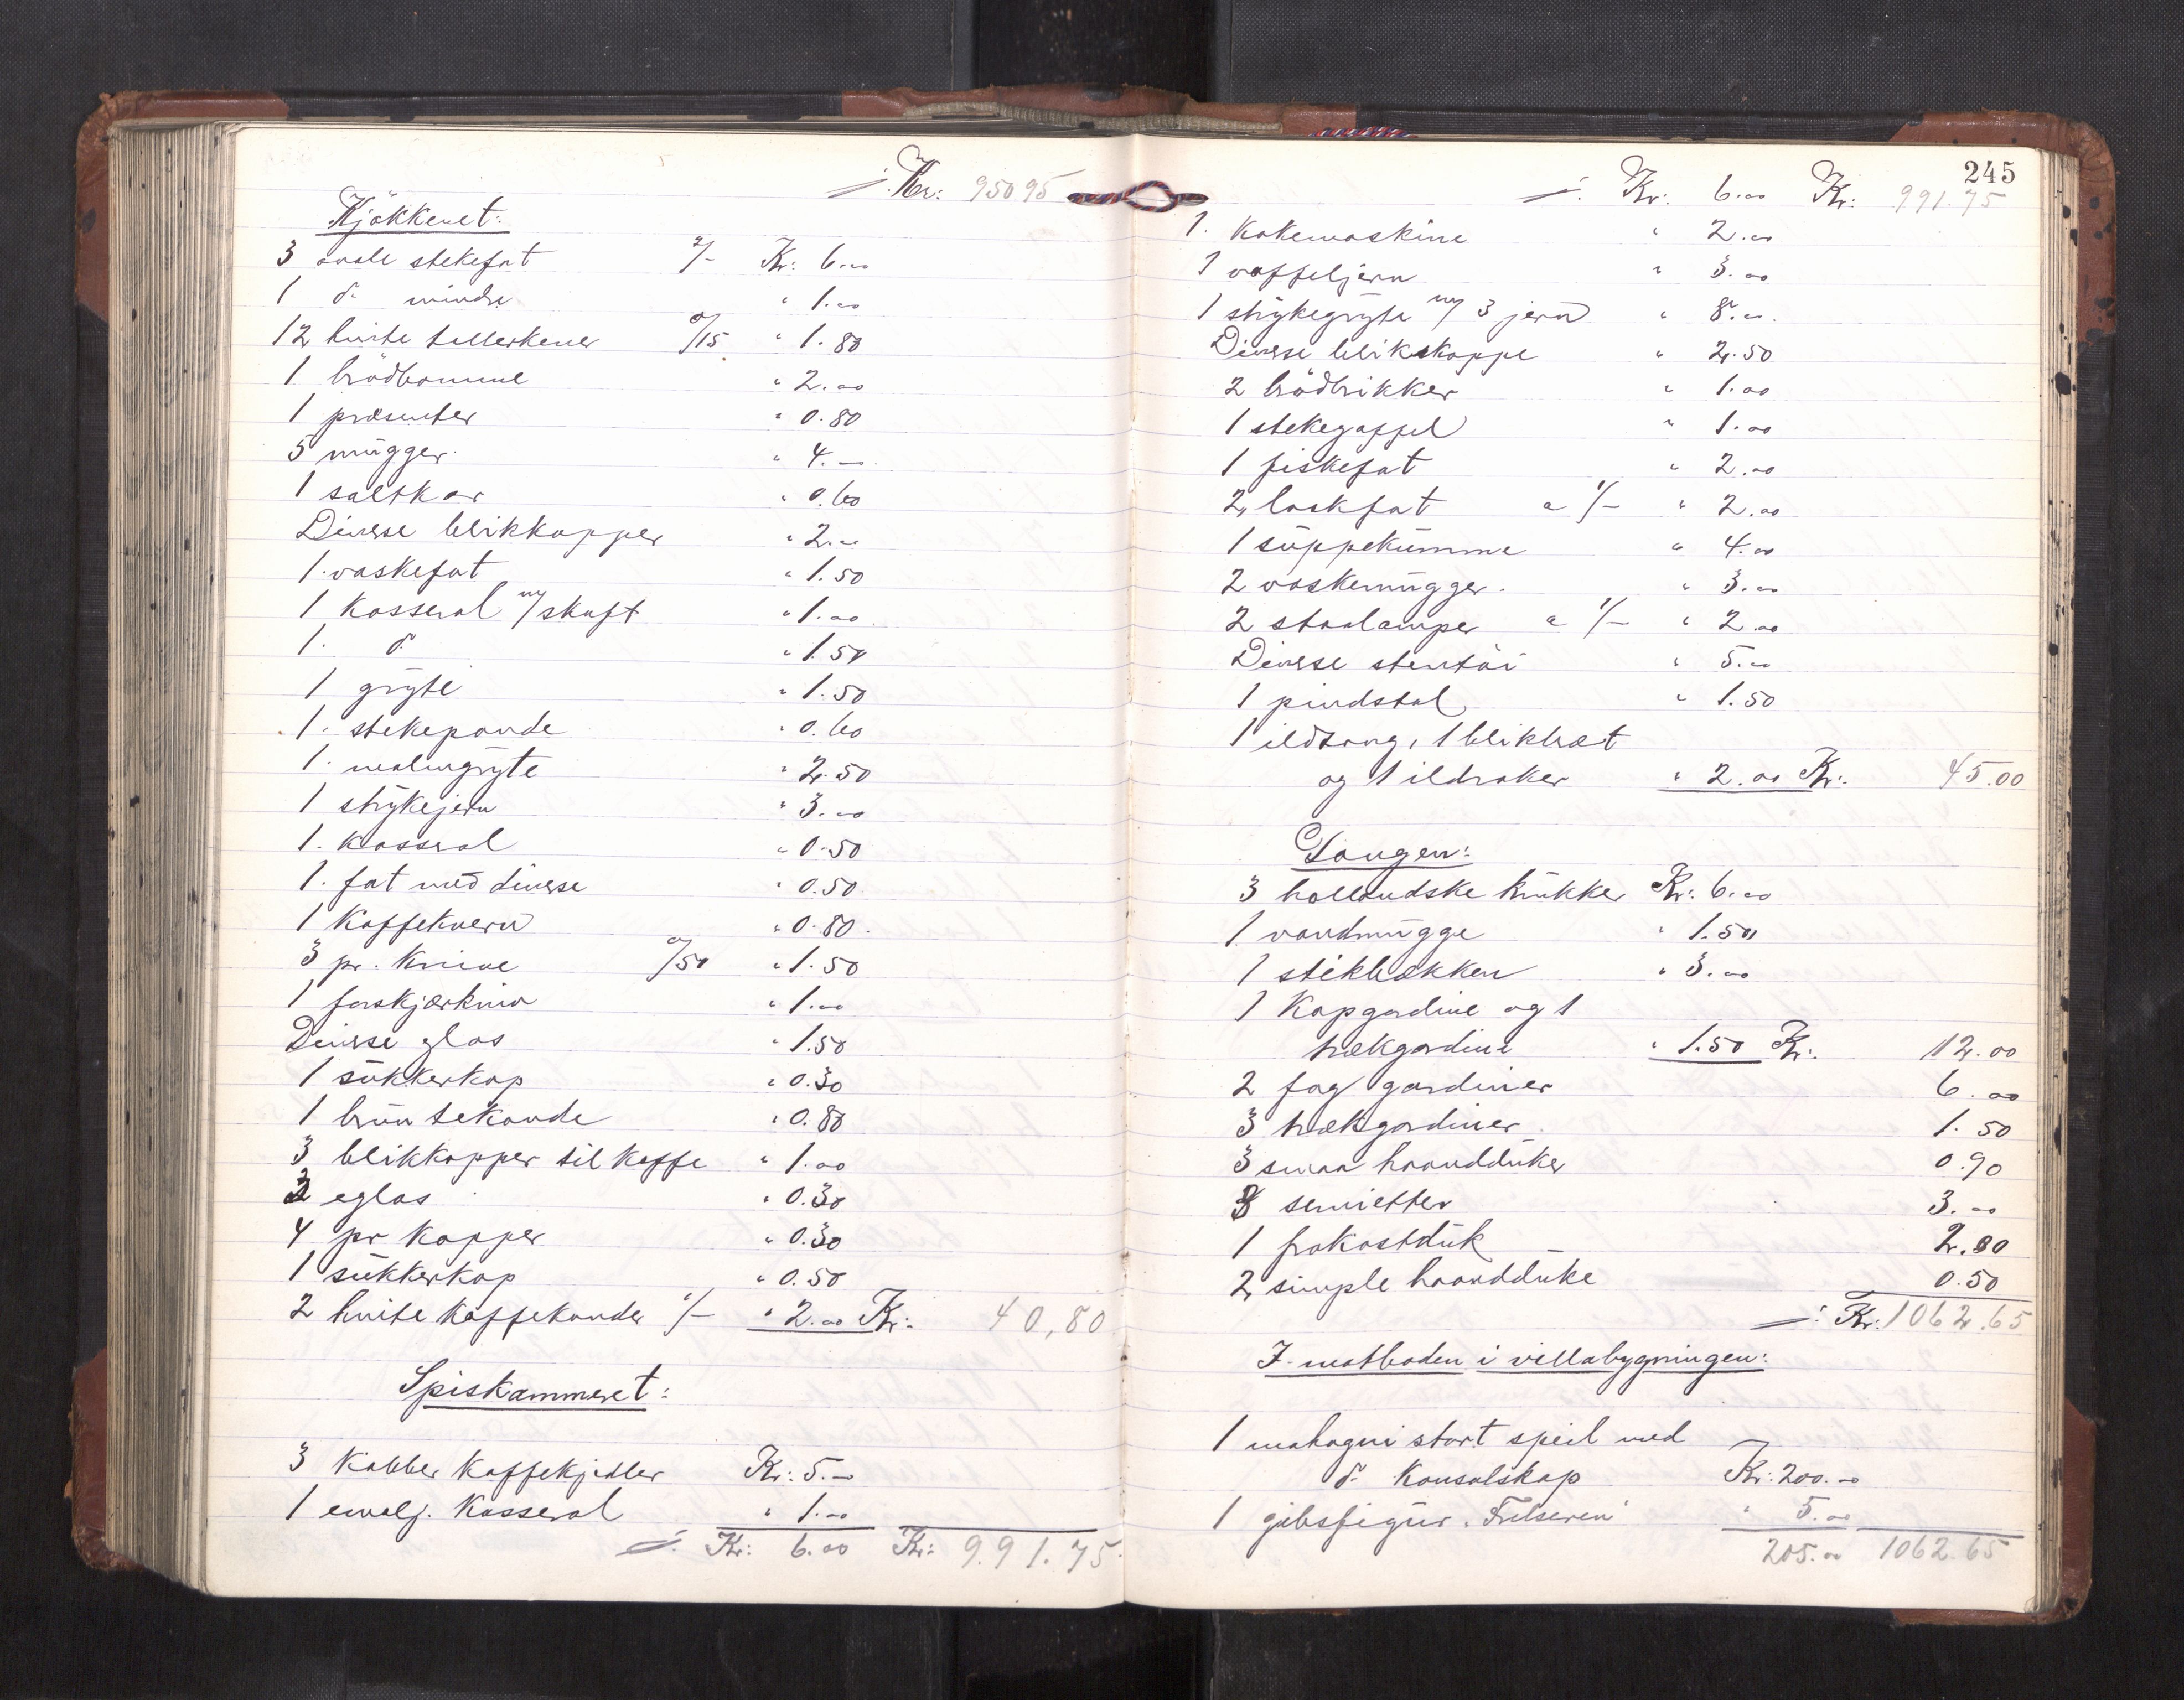 ./. Kr: 950 95
Kjökkenet:
3 ovale stekefat 2/- Kr: 6.00
1 do mindre " 1.00
12 hvite tallerkener a/15 " 1.80
1 brödbomme " 2.00
1 presenter " 0.80
5 mugger " 4.—
1 saltkar " 0.60
Diverse blikkopper " 2.00
1 vaskefat " 1.50
1 Kasserol m/skaft " 1.00
1. do " 1.50
1 gryte " 1.50
1. stekepande " 0.60
1. malmgryte " 2.50
1 strykejern " 3.00
1. kasserol " 0.50
1. fat med diverse " 0.50
1 Kaffekvern " 0.80.
3 pr. Knive a/50 " 1.50
1 forskjærkniv " 1.00
Diverse glas " 1.50
1 sukkerkop " 0.30
1 brun tekande " 0.80
3 blikkopper til Kaffe " 1.00
3 eglas " 0.30
4 pr Kopper " 0.30
1 sukkerkop " 0.50
2 hvite Kaffekander 1/- " 2.00 Kr: 40,80
Spiskammeret:
3 Kobber Kaffekjedler Kr: 5.—
1 emalj. Kasserol " 1.00
./. Kr: 6.00 Kr: 991.75
245
./. Kr: 6.00 Kr: 991.75
1. Kakemaskine " 2.00
1 vaffeljern " 3.00
1 strykegryte m/ 3 jern " 8.00.
Diverse blikskoppe " 2.50
2 brödbrikker " 1.00
1 stekegaffel " 1.00
1 fiskefat " 2.00
2 laskfat a 1/- " 2.00
1 suppekumme " 4.00
2 vaskemugger. " 3.00
2 staalamper a 1/- " 2.00
Diverse stentöi " 5.00
1 pindstol " 1.50
1 ildtang, 1 blikbret
og 1 ildraker " 2.00 Kr: 45.00
Gangen:
3 hollandske krukker Kr: 6.00
1 vandmugge " 1.50
1 stikbækken " 3.00
1 Kapgardine og 1
trækgardine " 1.50 Kr: 12.00
2 fag gardiner 6.00
3 trækgardiner 1.50
3 smaa haandduker 0.90
8 servietter 3.00
1 frokostduk 2.00
2 simple haandduke 0.50
./. Kr: 1062.65
I matboden i villabygningen:
1 mahogni stort speil med
do Konsolskap Kr: 200.00
1 gibsfigur. " 5.00
205.00 1062.65